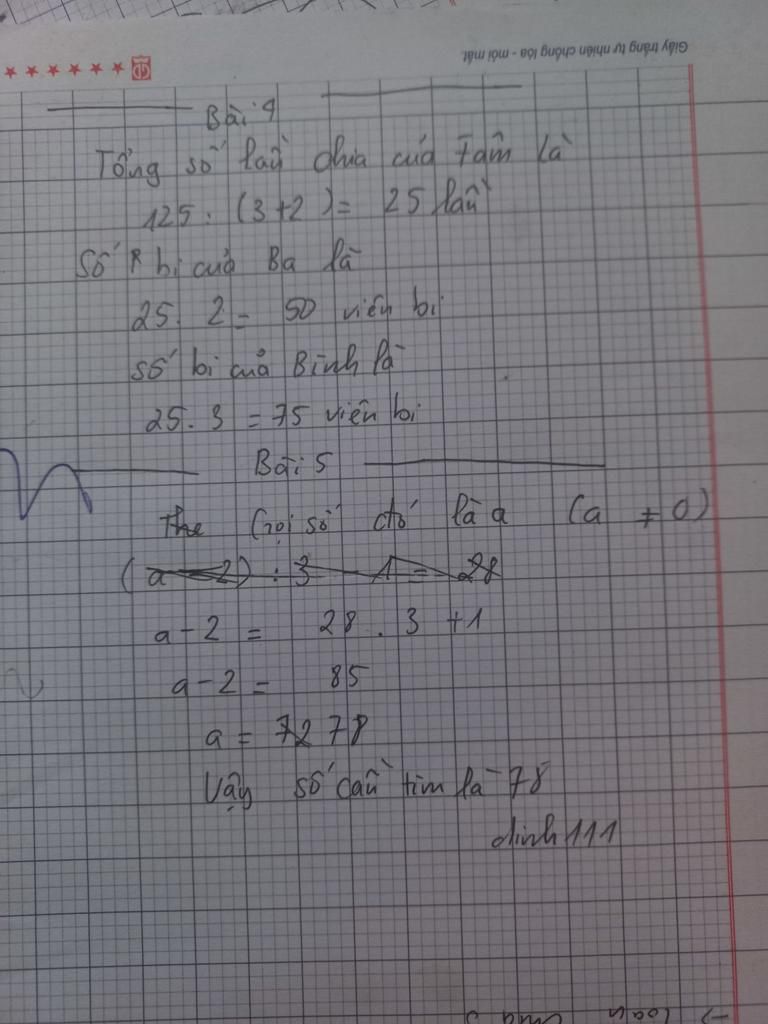 Giấy trắng tự nhiên chống lóa - mỏi mắt
Bài 4
Tổng số lần chia của Tâm là
125 : (3+2) = 25 lần
Số bi của Ba là
25 . 2 = 50 viên bi
số bi của Bình là
25 . 3 = 75 viên bi
Bài 5
The Gọi số đó là a (a ≠ 0)
(a - 2) : 3 - 1 = 28
a - 2 = 28 . 3 + 1
a - 2 = 85
a = 72 78
Vậy số cần tìm là 78
dinh 111